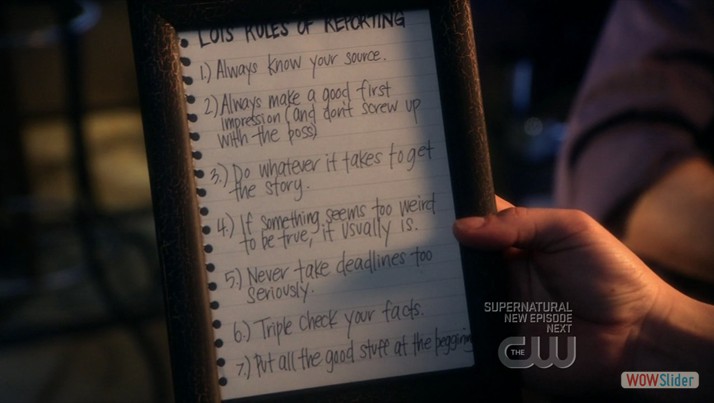 LOIS RULES OF REPORTING
1.) Always know your source.
2.) Always make a good first
impression (and don't screw up
with the boss)
3.) Do whatever it takes to get
the story.
4.) If something seems too weird
to be true, it usually is.
5.) Never take deadlines too
seriously.
6.) Triple check your facts.
7.) Put all the good stuff at the beggining
SUPERNATURAL
NEW EPISODE
NEXT
THE CW
WOWSlider